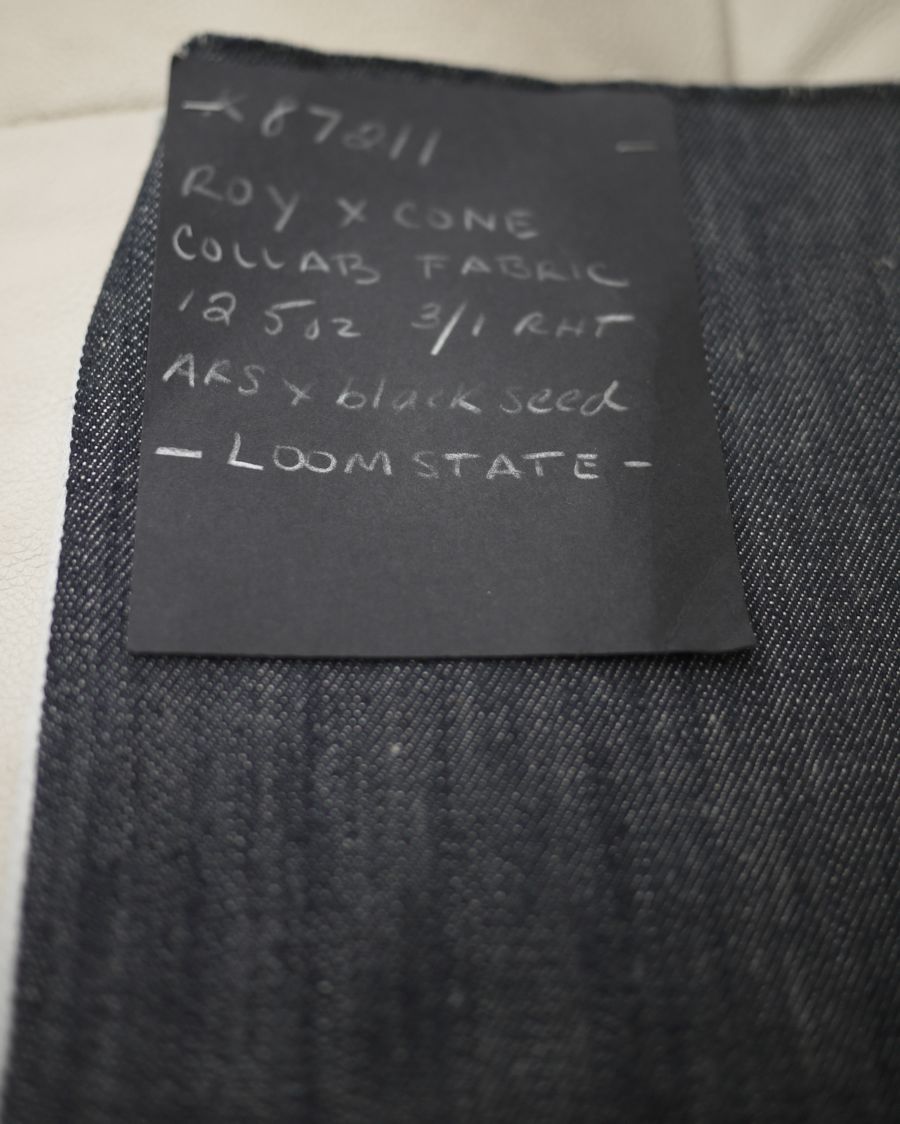 X87211
ROY X CONE
COLLAB FABRIC
12 5 oz 3/1 RHT
ARS x black seed
- LOOMSTATE -